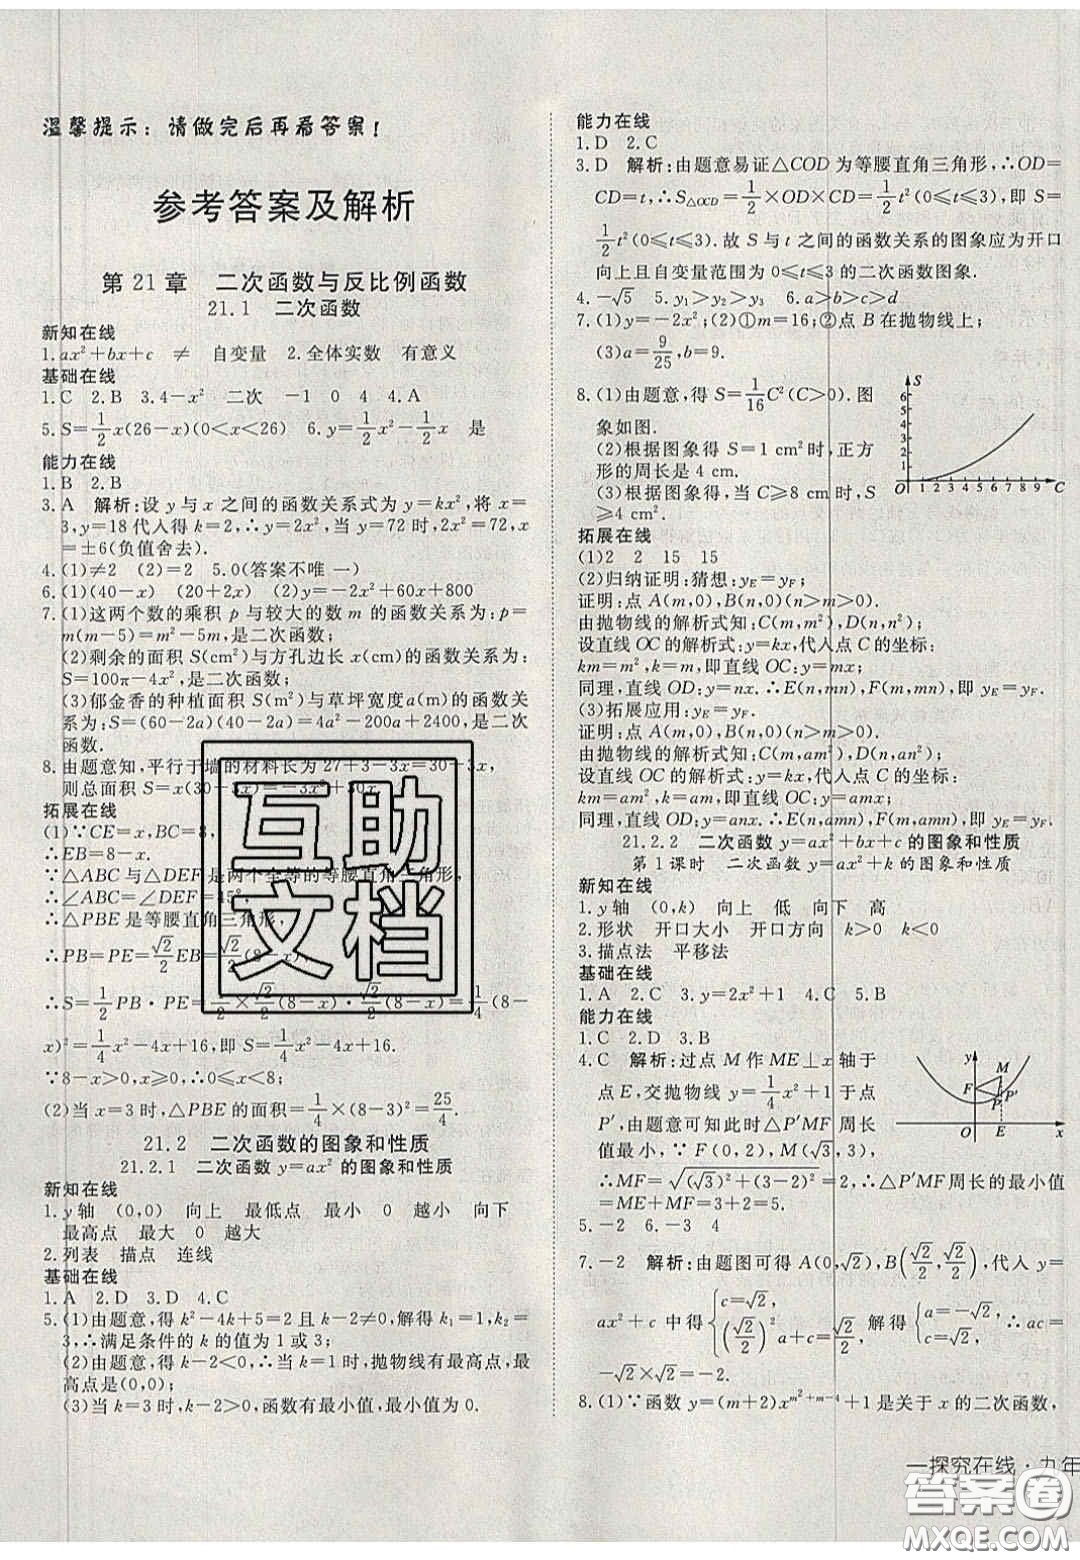 温馨提示：请做完后再看答案！
参考答案及解析
第21章 二次函数与反比例函数
21.1 二次函数
新知在线
1.ax²+bx+c ≠ 自变量 2.全体实数 有意义
基础在线
1.C 2.B 3.4-x² 二次 -1 0 4 4.A
5.S=1/2x(26-x)(0<x<26) 6.y=1/2x²-1/2x 是
能力在线
1.B 2.B
3.A 解析:设 y 与 x 之间的函数关系式为 y=kx²,将 x=
3,y=18代入得 k=2,∴y=2x²,当 y=72时,2x²=72,x
=±6(负值舍去).
4.(1)≠2 (2)=2 5.0(答案不唯一)
6.(1)(40-x) (20+2x) (2)y=-2x²+60x+800
7.(1)这两个数的乘积 p 与较大的数 m 的函数关系为:p=
m(m-5)=m²-5m,是二次函数;
(2)剩余的面积 S(cm²)与方孔边长 x(cm)的函数关系为:
S=100π-4x²,是二次函数;
(3)郁金香的种植面积 S(m²)与草坪宽度a(m)的函数关
系为:S=(60-2a)(40-2a)=4a²-200a+2400,是二次
函数.
8.由题意知,平行于墙的材料长为27+3-3x=30-3x,
则总面积 S=x(30-3x)=-3x²+30x.
拓展在线
(1)∵CE=x,BC=8,
∴EB=8-x.
∵△ABC 与△DEF 是两个全等的等腰直角三角形,
∴∠ABC=∠DEF=45°.
∴△PBE 是等腰直角三角形,
∴PB=PE=√2/2EB=√2/2(8-x).
∴S=1/2PB·PE=1/2×√2/2(8-x)·√2/2(8-x)=1/4(8-
x)²=1/4x²-4x+16,即 S=1/4x²-4x+16.
∵8-x>0,x≥0,∴0≤x<8.
(2)当 x=3时,△PBE 的面积=1/4×(8-3)²=25/4.
21.2 二次函数的图象和性质
21.2.1 二次函数 y=ax² 的图象和性质
新知在线
1.y轴 (0,0) 向上 最低点 最小 0 越小 向下
最高点 最大 0 越大
2.列表 描点 连线
基础在线
1.A 2.D 3.D 4.C
5.(1)由题意,得 k²-4k+5=2且 k-2≠0,解得 k₁=1,k₂=
3,∴满足条件的 k 的值为1或3;
(2)由题意得 k-2<0,∴当 k=1时,抛物线有最高点,最
高点是(0,0);
(3)当 k=3时,k-2>0,函数有最小值,最小值为0.
能力在线
1.D 2.C
3.D 解析:由题意易证△COD 为等腰直角三角形,∴OD=
CD=t,∴S△OCD=1/2×OD×CD=1/2t²(0≤t≤3),即 S=
1/2t²(0≤t≤3).故 S 与 t 之间的函数关系的图象应为开口
向上且自变量范围为0≤t≤3的二次函数图象.
4.-√5 5.y₁>y₂>y₃ 6.a>b>c>d
7.(1)y=-2x²;(2)①m=16;②点 B 在抛物线上;
(3)a=9/25,b=9.
8.(1)由题意,得 S=1/16C²(C>0).图
象如图.
(2)根据图象得 S=1 cm²时,正方
形的周长是4 cm.
(3)根据图象得,当 C≥8 cm时,S
≥4 cm².
S
6
5
4
3
2
1
O 1 2 3 4 5 6 7 8 9 C
拓展在线
(1)2 2 15 15
(2)归纳证明:猜想:yE=yF;
证明:点 A(m,0),B(n,0)(n>m>0).
由抛物线的解析式知:C(m,m²),D(n,n²).
设直线 OC 的解析式:y=kx,代入点 C 的坐标:
km=m²,k=m,即直线 OC:y=mx;
同理,直线 OD:y=nx.∴E(n,mn),F(m,mn),即 yE=yF.
(3)拓展应用:yE=yF.
证明:点 A(m,0),B(n,0)(n>m>0).
由抛物线的解析式知:C(m,am²),D(n,an²).
设直线 OC 的解析式:y=kx,代入点 C 的坐标:
km=am²,k=am,即直线 OC:y=amx;
同理,直线 OD:y=anx.∴E(n,amn),F(m,amn),即 yE=yF.
21.2.2 二次函数 y=ax²+bx+c 的图象和性质
第1课时 二次函数 y=ax²+k 的图象和性质
新知在线
1.y轴 (0,k) 向上 低 向下 高
2.形状 开口大小 开口方向 k>0 k<0
3.描点法 平移法
基础在线
1.A 2.C 3.y=2x²+1 4.C 5.B
能力在线
1.C 2.D 3.B
4.C 解析:过点 M 作 ME⊥x 轴于
点 E,交抛物线 y=1/4x²+1于点
P′,由题意可知此时△P′MF 周长
值最小,∵F(0,2),M(√3,3),
∴MF=√((√3)²+(3-2)²)=2,∴△P′MF 周长的最小值
=ME+MF=3+2=5.
y
M
F
P
P′
O E x
5.-2 6.-3 4
7.-2 解析:由题图可得 A(0,√2),B(√2/2,√2/2),代入 y=
ax²+c 中得{c=√2,(√2/2)²a+c=√2/2,解得{a=-√2,c=√2.∴ac=
-√2×√2=-2.
8.(1)∵函数 y=(m+2)x^(m²+m-4)+1是关于 x 的二次函数,
一探究在线·九年
互助
文档
答案圈
MXQE.COM